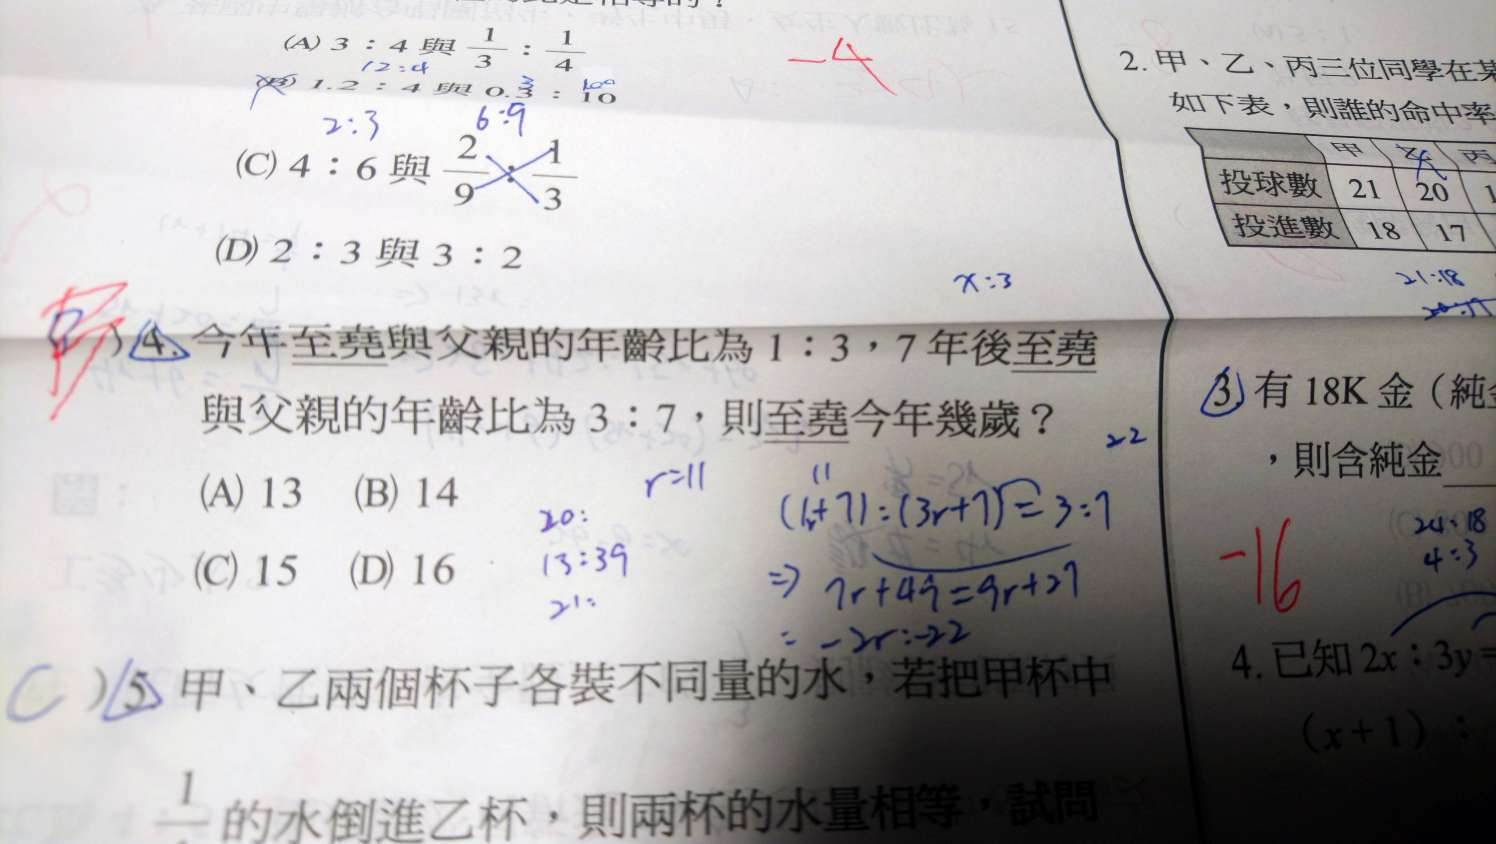 (A) 3：4 與 1/3：1/4
12:4
1.2：4 與 0.3：10
2:3 6:9
(C) 4：6 與 2/9：1/3
(D) 2：3 與 3：2
x:3
)4. 今年至堯與父親的年齡比為 1：3，7 年後至堯
與父親的年齡比為 3：7，則至堯今年幾歲？
(A) 13 (B) 14
(C) 15 (D) 16
r=11
20:
13:39
21:
11
22
(r+7):(3r+7)=3:7
⇒ 7r+49=9r+27
= -2r:-22
C )5. 甲、乙兩個杯子各裝不同量的水，若把甲杯中
的水倒進乙杯，則兩杯的水量相等，試問
-4
2. 甲、乙、丙三位同學在某
如下表，則誰的命中率
甲 乙 丙
投球數 21 20 1
投進數 18 17
21:18
3 有 18K 金（純金
，則含純金
24:18
4:3
-16
4. 已知 2x：3y=
(x+1)：